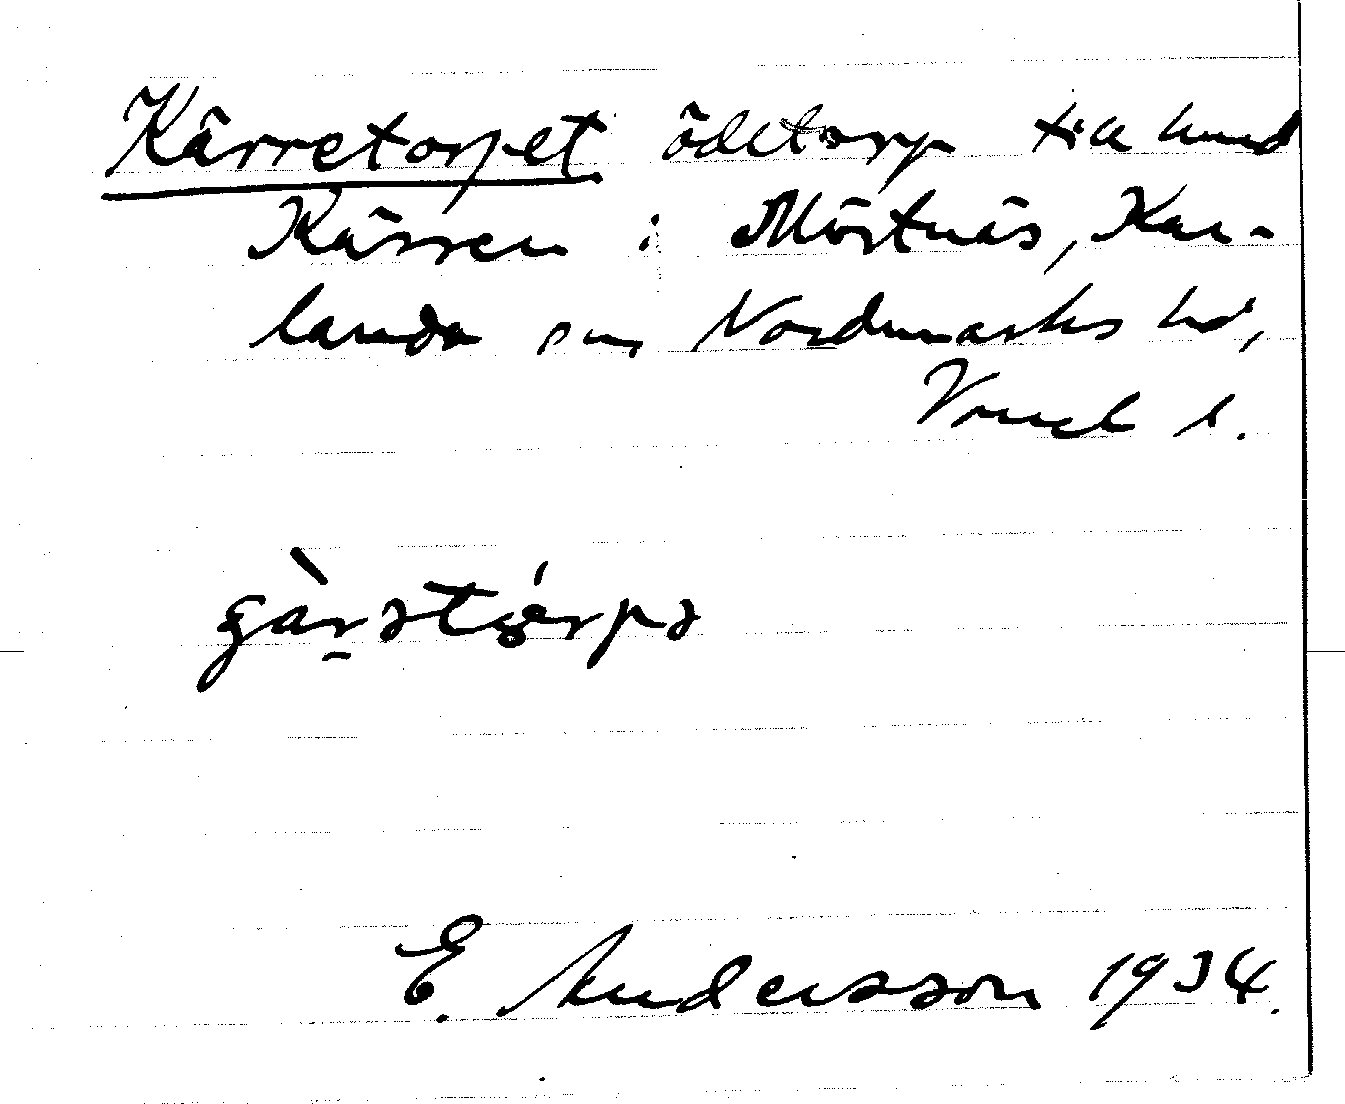 Kärretorpet ödetorp till hmd
Kärren i Mörtnäs, Kar-
landa sn, Nordmarks hd,
Vrml l.
gàrətǿrpə
E. Andersson 1934.